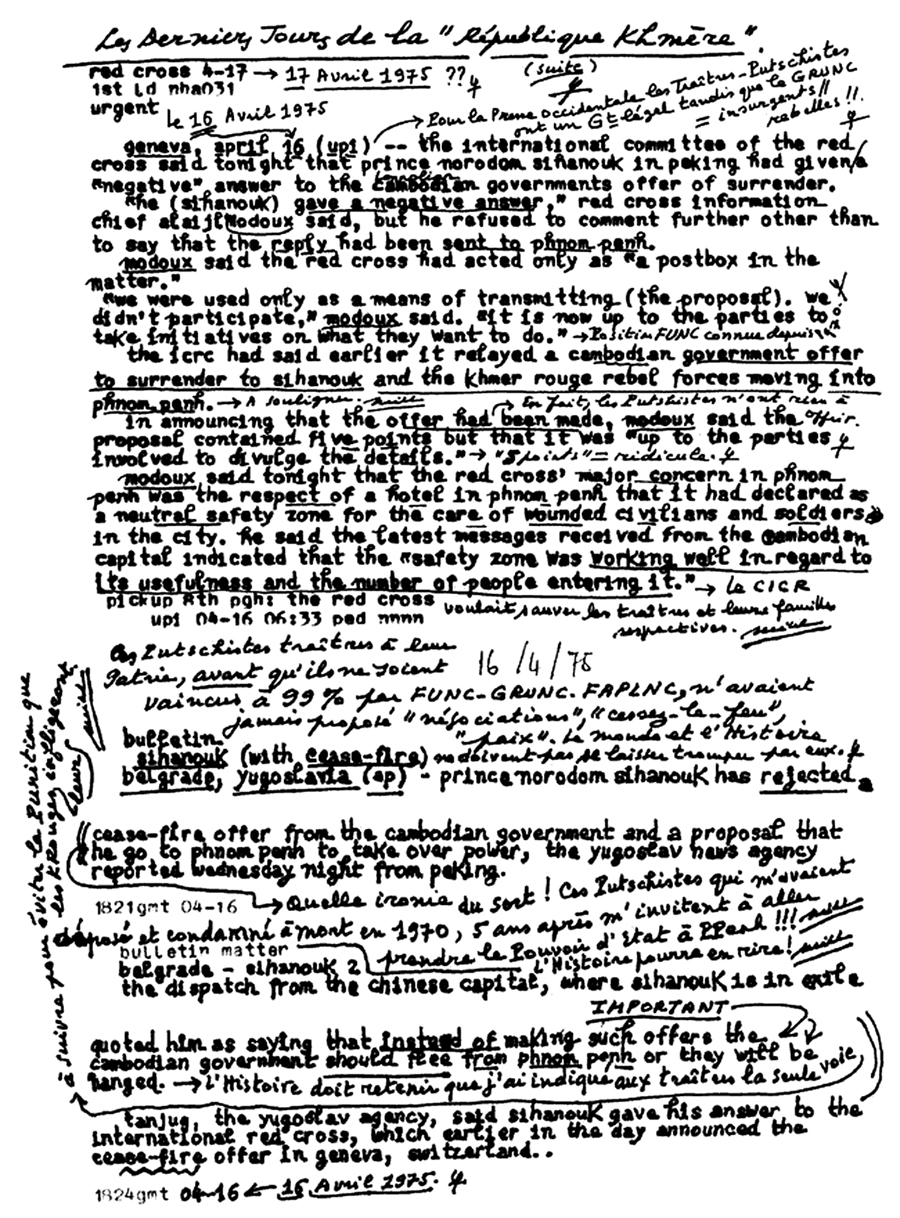 Les Derniers Jours de la "République Khmère".
(suite)
red cross 4-17 → 17 Avril 1975 ??
1st ld nha031
urgent
le 16 Avril 1975
→ Pour la Presse occidentale les Traîtres-Putschistes
ont un Gt légal tandis que le GRUNC
= insurgents!!
rebelles!!.
geneva, april 16 (upi) -- the international committee of the red
cross said tonight that prince norodom sihanouk in peking had given a
"negative" answer to the cambodian governments offer of surrender.
"he (sihanouk) gave a negative answer," red cross information
chief alaij Modoux said, but he refused to comment further other than
to say that the reply had been sent to phnom penh.
modoux said the red cross had acted only as "a postbox in the
matter."
"we were used only as a means of transmitting (the proposal). we
didn't participate," modoux said. "it is now up to the parties to
take initiatives on what they want to do." → Position FUNC connue depuis
the icrc had said earlier it relayed a cambodian government offer
to surrender to sihanouk and the khmer rouge rebel forces moving into
phnom penh. → A souligner. → En fait, les Putschistes n'ont rien à
offrir.
in announcing that the offer had been made, modoux said the
proposal contained five points but that it was "up to the parties
involved to divulge the details." → "5 points" = ridicule.
modoux said tonight that the red cross' major concern in phnom
penh was the respect of a hotel in phnom penh that it had declared as
a neutral safety zone for the care of wounded civilians and soldiers
in the city. he said the latest messages received from the cambodian
capital indicated that the "safety zone was working well in regard to
its usefulness and the number of people entering it." → le CICR
voulait sauver les traîtres et leurs familles
respectives.
pickup 8th pgh: the red cross
upi 04-16 06:33 ped nnnn
Ces Putschistes traîtres à leur
Patrie, avant qu'ils ne soient 16/4/75
vaincus à 99% par FUNC-GRUNC-FAPLNC, n'avaient
jamais proposé "négociations", "cessez-le-feu",
"paix". Le monde et l'Histoire
ne doivent pas se laisser tromper par eux.
bulletin
sihanouk (with cease-fire)
belgrade, yugoslavia (ap) - prince norodom sihanouk has rejected a
cease-fire offer from the cambodian government and a proposal that
he go to phnom penh to take over power, the yugoslav news agency
reported wednesday night from peking.
1821gmt 04-16 → Quelle ironie du sort! Ces Putschistes qui m'avaient
déposé et condamné à mort en 1970, 5 ans après m'invitent à aller
prendre le Pouvoir d'Etat à PPenh!!!
L'Histoire pourra en rire!
bulletin matter
belgrade - sihanouk 2
the dispatch from the chinese capital, where sihanouk is in exile
IMPORTANT
quoted him as saying that instead of making such offers the
cambodian government should flee from phnom penh or they will be
hanged. → L'Histoire doit retenir que j'ai indiqué aux traîtres la seule voie
à suivre pour éviter la Punition que
les K.Rouges infligeront
leur
tanjug, the yugoslav agency, said sihanouk gave his answer to the
international red cross, which earlier in the day announced the
cease-fire offer in geneva, switzerland..
1824gmt 04-16 ← 16 Avril 1975.